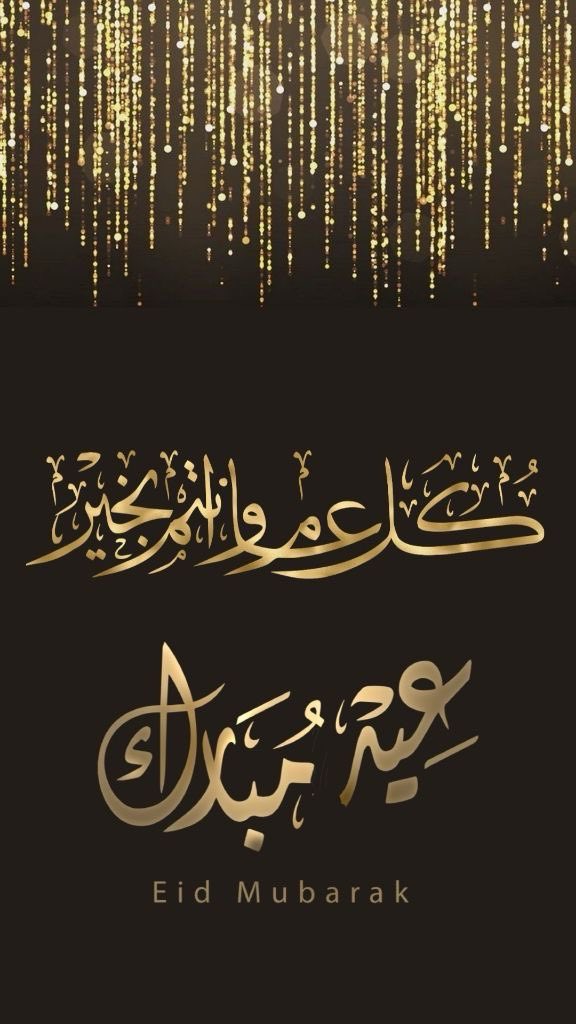 كُل عام وانتم بخيْر
عِيْد مُبَارَك
Eid Mubarak